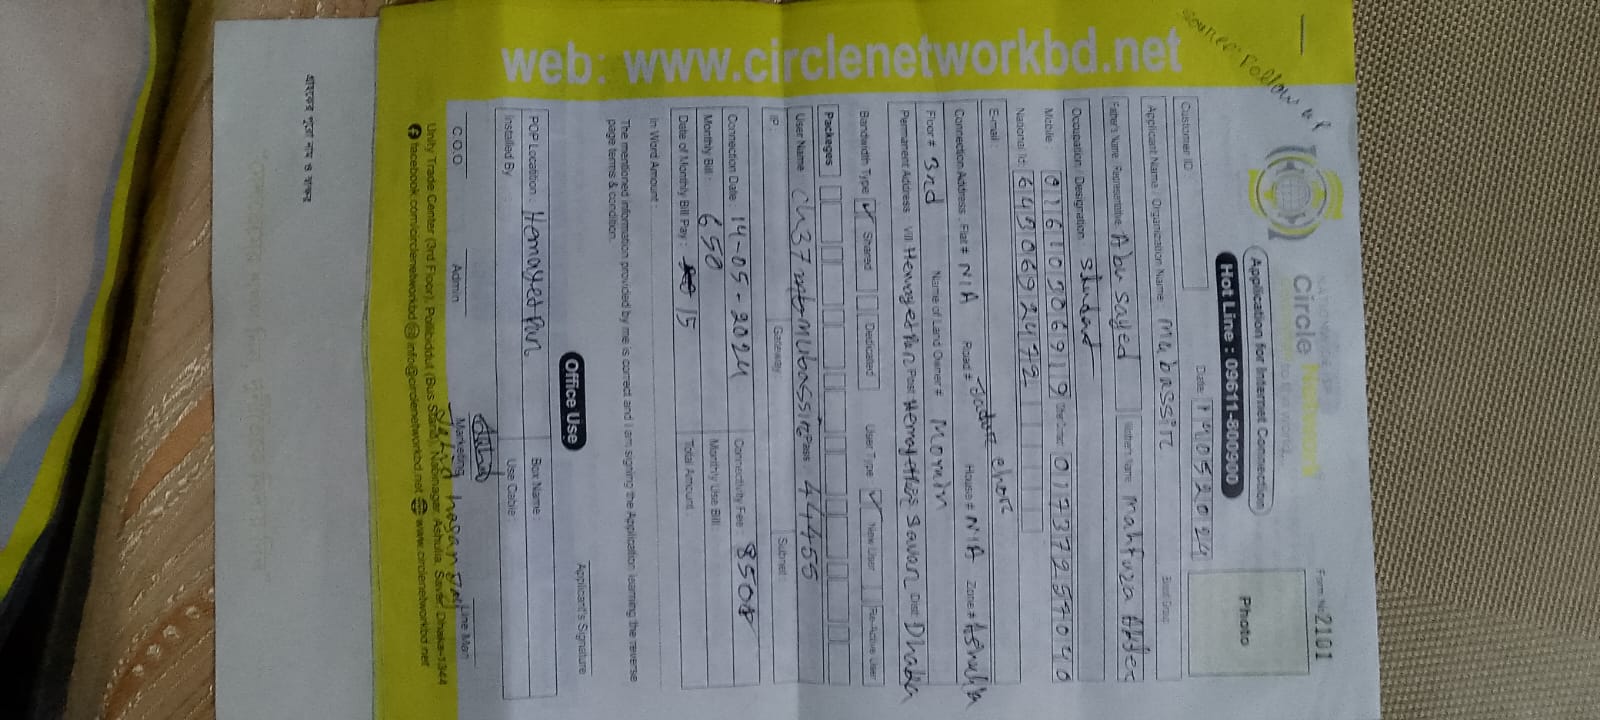 connect: Follow up
NATIONWIDE ISP
circle Network
Form No: 2101
Application for Internet Connection
Hot Line : 09611-800900
Photo
Customer ID
Date: 14052024
Applicant Name / Organization Name: mubassir
Blood Group:
Father's Name / Representative Abu sayed
Mother's Name mahfuza Akter
Occupation / Designation : student
Mobile: 01610306919
01737254040
National Id: 6490692472
E-mail:
Connection Address : Flat # N/A Road # House # N/A Zone # Ashulia
Floor # 3rd Name of Land Owner # Momin
Permanent Address : Vill Hemayetpur Post Hemayetpur Savar Dist. Dhaka
Bandwidth Type ✓ Shared Dedicated User Type ✓ New User Re-Active User
Packages
User Name : Pass: 44455
IP: Gateway: Subnet
Connection Date : 14-05-2024 Connectivity Fee:
Monthly Bill : 650 Monthly Use Bill:
Date of Monthly Bill Pay : 15 Total Amount :
In Word Amount :
The mentioned information provided by me is correct and I am signing the Application learning the reverse
page terms & condition.
Applicant's Signature
Office Use
POP Location : Hemayetpur Box Name:
Installed By Use Cable:
C.O.O Admin Marketing Line Man
Unity Trade Center (3rd Floor), Pollibiddut (Bus Stand), Nabinagar, Ashulia, Savar, Dhaka-1344
facebook.com/circlenetworkbd info@circlenetworkbd.net www.circlenetworkbd.net
web: www.circlenetworkbd.net